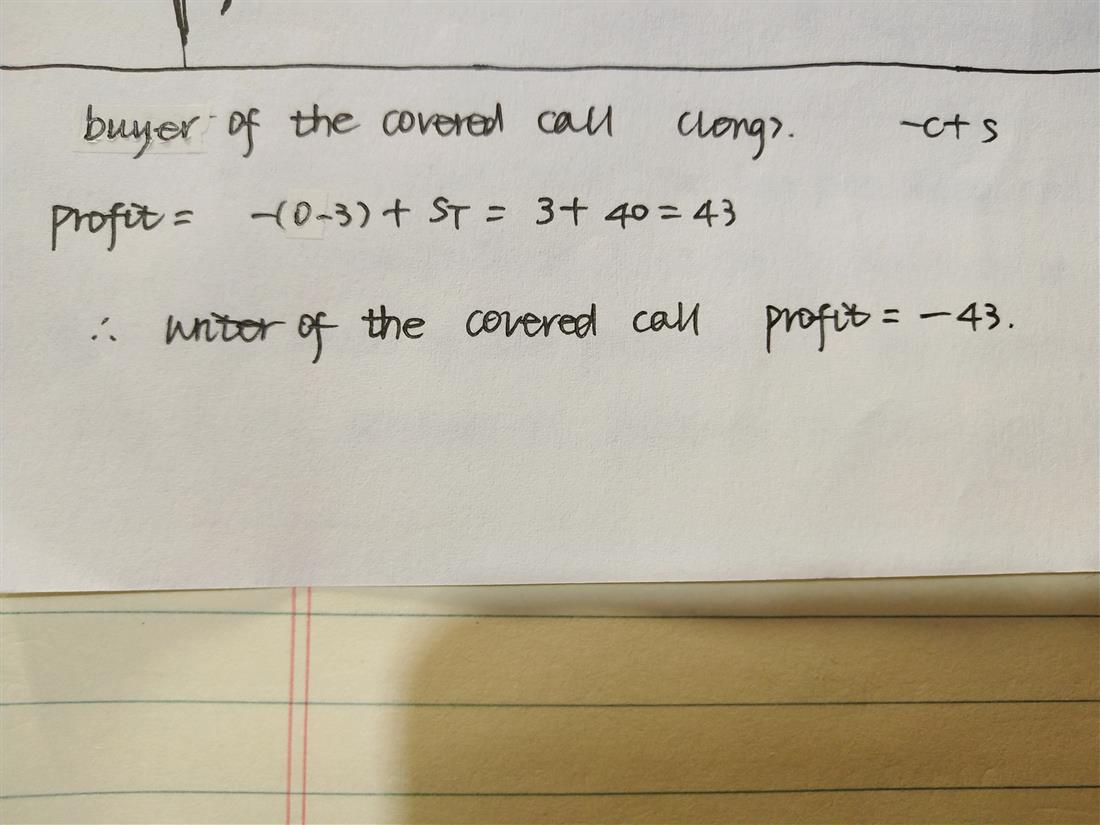 buyer of the covered call (long). -c+s
profit = -(0-3) + ST = 3+ 40 = 43
∴ writer of the covered call profit = -43.